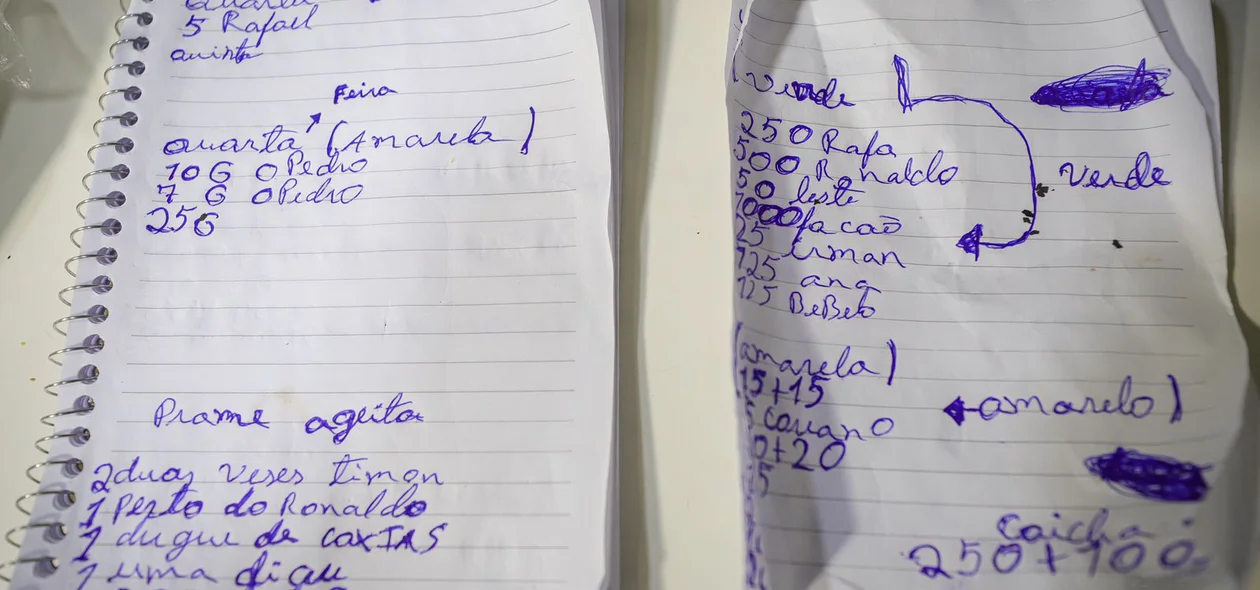 5 Rafael
quinta
Feira
quarta (Amarela)
10 G O Pedro
7 G O Pedro
25G
Prame ageita
2 duas veses Timon
1 Perto do Ronaldo
1 duque de caxIAS
1 uma digau
(Verde
250 Rafa
500 Ronaldo
50 leste
1000 facaõ
25 irman
125 ana
125 BeBeto
verde
(amarela)
15+15
5 couano
0+20
5
amarelo)
Caicha
250+100